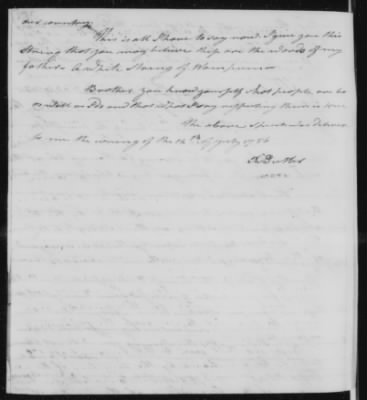 our country
This is all I have to say now. I give you this
String that you may believe these are the words of my
fathers a white String of Wampum
Brother you know yourself that people are to
as well as I do and that what I say respecting them is true
The above Speech was deliver
to me the evening of the 14th of July 1786
over